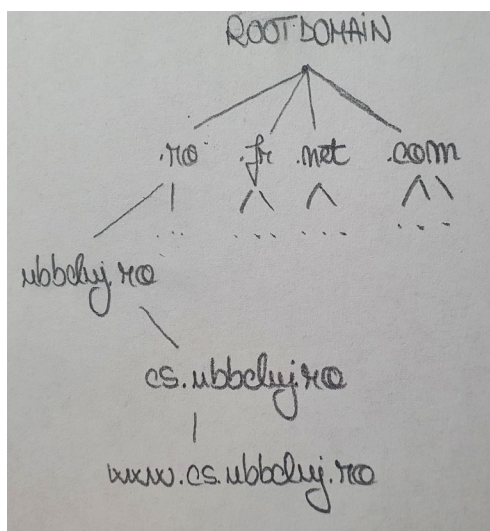 ROOT DOMAIN
.ro .fr .net .com
... ... ... ...
ubbcluj.ro
cs.ubbcluj.ro
www.cs.ubbcluj.ro